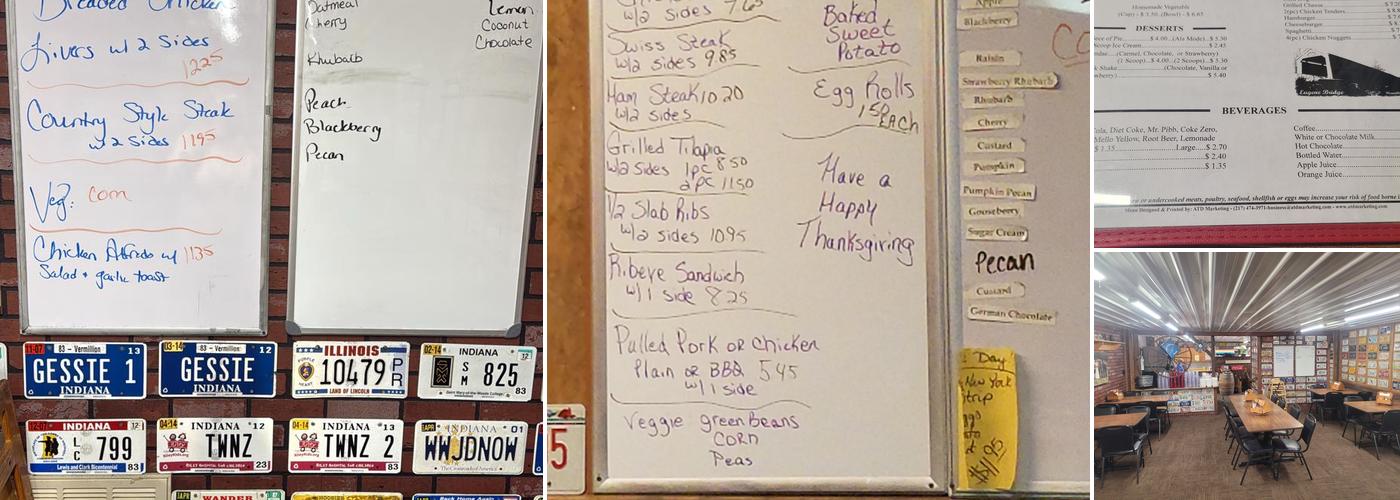 Breaded Chicken
Livers w/ 2 Sides
1225
Country Style Steak
w/ 2 Sides 1195
Veg: corn
Chicken Alfredo w/ 1135
Salad + garlic toast
Oatmeal
Cherry
Rhubarb
Peach
Blackberry
Pecan
Lemon
Coconut
Chocolate
11-07 83 - Vermillion 13
GESSIE 1
INDIANA
03-14 83 - Vermillion 12
GESSIE
INDIANA
ILLINOIS
PURPLE HEART
10479 PR
LAND OF LINCOLN
02-14 INDIANA 12
SM 825
83
12-07 INDIANA 12
LC 799
Lewis and Clark Bicentennial 83
04-14 INDIANA 12
TWNZ
RILEY HOSPITAL FOR CHILDREN 23
04-14 INDIANA
TWNZ 2
RILEY HOSPITAL FOR CHILDREN 83
APR INDIANA 01
WWJDNOW
The Crossroads of America
WANDER
Back Home Again
w/2 sides 7.65
Swiss Steak
w/2 sides 9.85
Ham Steak 10 20
w/2 sides
Grilled Tilapia
w/2 sides 1pc 8 50
2pc 11 50
1/2 Slab Ribs
w/2 sides 10 95
Ribeye Sandwich
w/1 side 8 25
Pulled Pork or Chicken
Plain or BBQ 5 45
w/1 side
Veggie green Beans
Corn
Peas
Baked
Sweet
Potato
Egg Rolls
1 50
EACH
Have a
Happy
Thanksgiving
5
Apple
Blackberry
Raisin
Strawberry Rhubarb
Rhubarb
Cherry
Custard
Pumpkin
Pumpkin Pecan
Gooseberry
Sugar Cream
Pecan
Custard
German Chocolate
Day
New York
Strip
Homemade Vegetable
(Cup) - $ 3.50, (Bowl) - $ 6.65
DESSERTS
ece of Pie $ 4.00 (Ala Mode) $ 5.30
Scoop Ice Cream $ 2.45
ndae (Carmel, Chocolate, or Strawberry)
(1 Scoop) $ 4.00 (2 Scoops) $ 5.30
Shake (Chocolate, Vanilla or
wberry) $ 5.40
Grilled Cheese
(2pc) Chicken Tenders
Hamburger
Cheeseburger
Spaghetti
(4pc) Chicken Nuggets
Eugene Bridge
BEVERAGES
ola, Diet Coke, Mr. Pibb, Coke Zero,
Mello Yellow, Root Beer, Lemonade
$ 1.35 Large $ 2.70
$ 2.40
$ 1.35
Coffee
White or Chocolate Milk
Hot Chocolate
Bottled Water
Apple Juice
Orange Juice
or undercooked meats, poultry, seafood, shellfish or eggs may increase your risk of food borne
Menu Designed & Printed by: ATD Marketing - (217) 474-3971-business@atdmarketing.com - www.atdmarketing.com